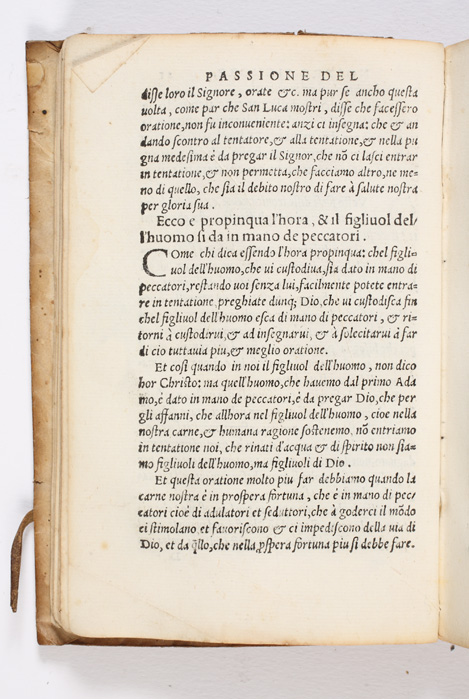 PASSIONE DEL
disse loro il Signore, orate &c. ma pur se ancho questa
uolta, come par che San Luca mostri, disse che facessero
oratione, non fu inconueniente: anzi ci insegna: che & an
dando scontro al tentatore, & alla tentatione, & nella pu
gna medesima é da pregar il Signor, che nõ ci lasci entrar
in tentatione, & non permetta, che facciamo altro, ne me=
no di quello, che sia il debito nostro di fare à salute nostra
per gloria sua.
Ecco e propinqua l'hora, & il figliuol del/
l'huomo si da in mano de peccatori.
COme chi dica essendo l'hora propinqua: chel figli=
uol dell'huomo, che ui custodiua, sia dato in mano di
peccatori, restando uoi senza lui, facilmente potete entra=
re in tentatione, preghiate dunq; Dio, che ui custodisca fin
chel figliuol dell'huomo esca di mano di peccatori, & ri=
torni à custodirui, & ad insegnarui, & à solecitarui à far
di cio tuttauia piu, & meglio oratione.
Et cosi quando in noi il figliuol dell'huomo, non dico
hor Christo: ma quell'huomo, che hauemo dal primo Ada
mo, é dato in mano de peccatori, é da pregar Dio, che per
gli affanni, che allhora nel figliuol dell'huomo, cioe nella
nostra carne, & humana ragione sostenemo, nõ entriamo
in tentatione noi, che rinati d'acqua & di spirito non sia=
mo figliuoli dell'huomo, ma figliuoli di Dio.
Et questa oratione molto piu far debbiamo quando la
carne nostra é in prospera fortuna, che é in mano di pec=
catori cioé di adulatori et seduttori, che à goderci il mõdo
ci stimolano, et fauoriscono & ci impediscono della uia di
Dio, et da q̃llo, che nella ꝓspera fortuna piu si debbe fare.